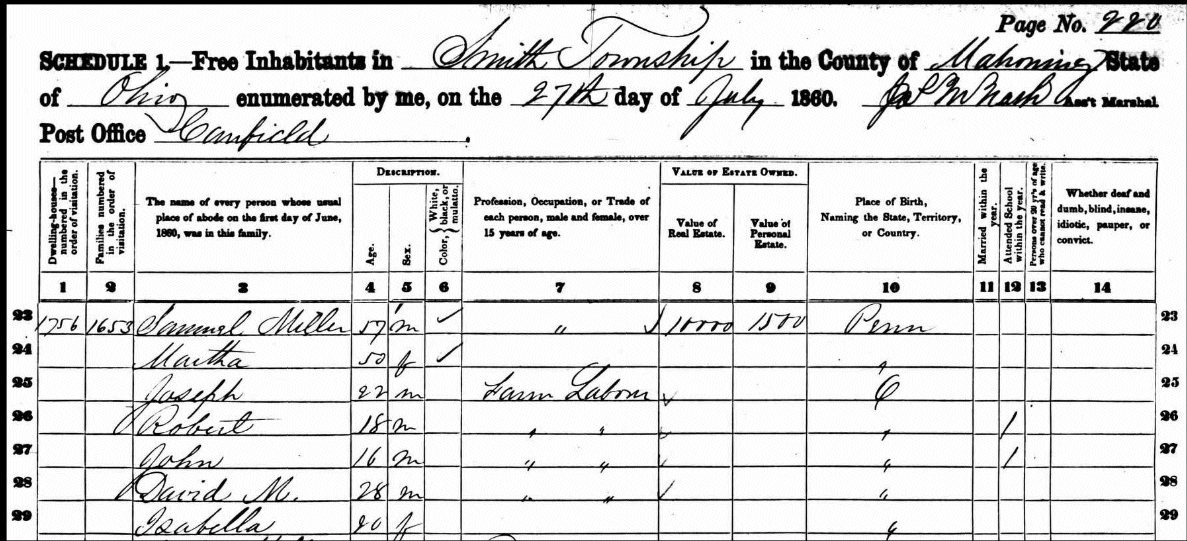 Page No. 220
SCHEDULE 1.—Free Inhabitants in Smith Township in the County of Mahoning State
of Ohio enumerated by me, on the 27th day of July 1860. Nash Ass't Marshal
Post Office Canfield.
Dwelling-houses— numbered in the order of visitation.
Families numbered in the order of visitation.
The name of every person whose usual place of abode on the first day of June, 1860, was in this family.
DESCRIPTION.
Age.
Sex.
Color, { White, black, or mulatto.
Profession, Occupation, or Trade of each person, male and female, over 15 years of age.
VALUE OF ESTATE OWNED.
Value of Real Estate.
Value of Personal Estate.
Place of Birth, Naming the State, Territory, or Country.
Married within the year.
Attended School within the year.
Persons over 20 yr's of age who cannot read & write.
Whether deaf and dumb, blind, insane, idiotic, pauper, or convict.
1 2 3 4 5 6 7 8 9 10 11 12 13 14
23 1756 1653 Samuel Miller 57 m ✓ " 10000 1500 Penn 23
24 Martha 50 f ✓ " 24
25 Joseph 22 m Farm Labour O 25
26 Robert 18 m " " " / 26
27 John 16 m " " " / 27
28 David M. 28 m " " " 28
29 Isabella 20 f " 29